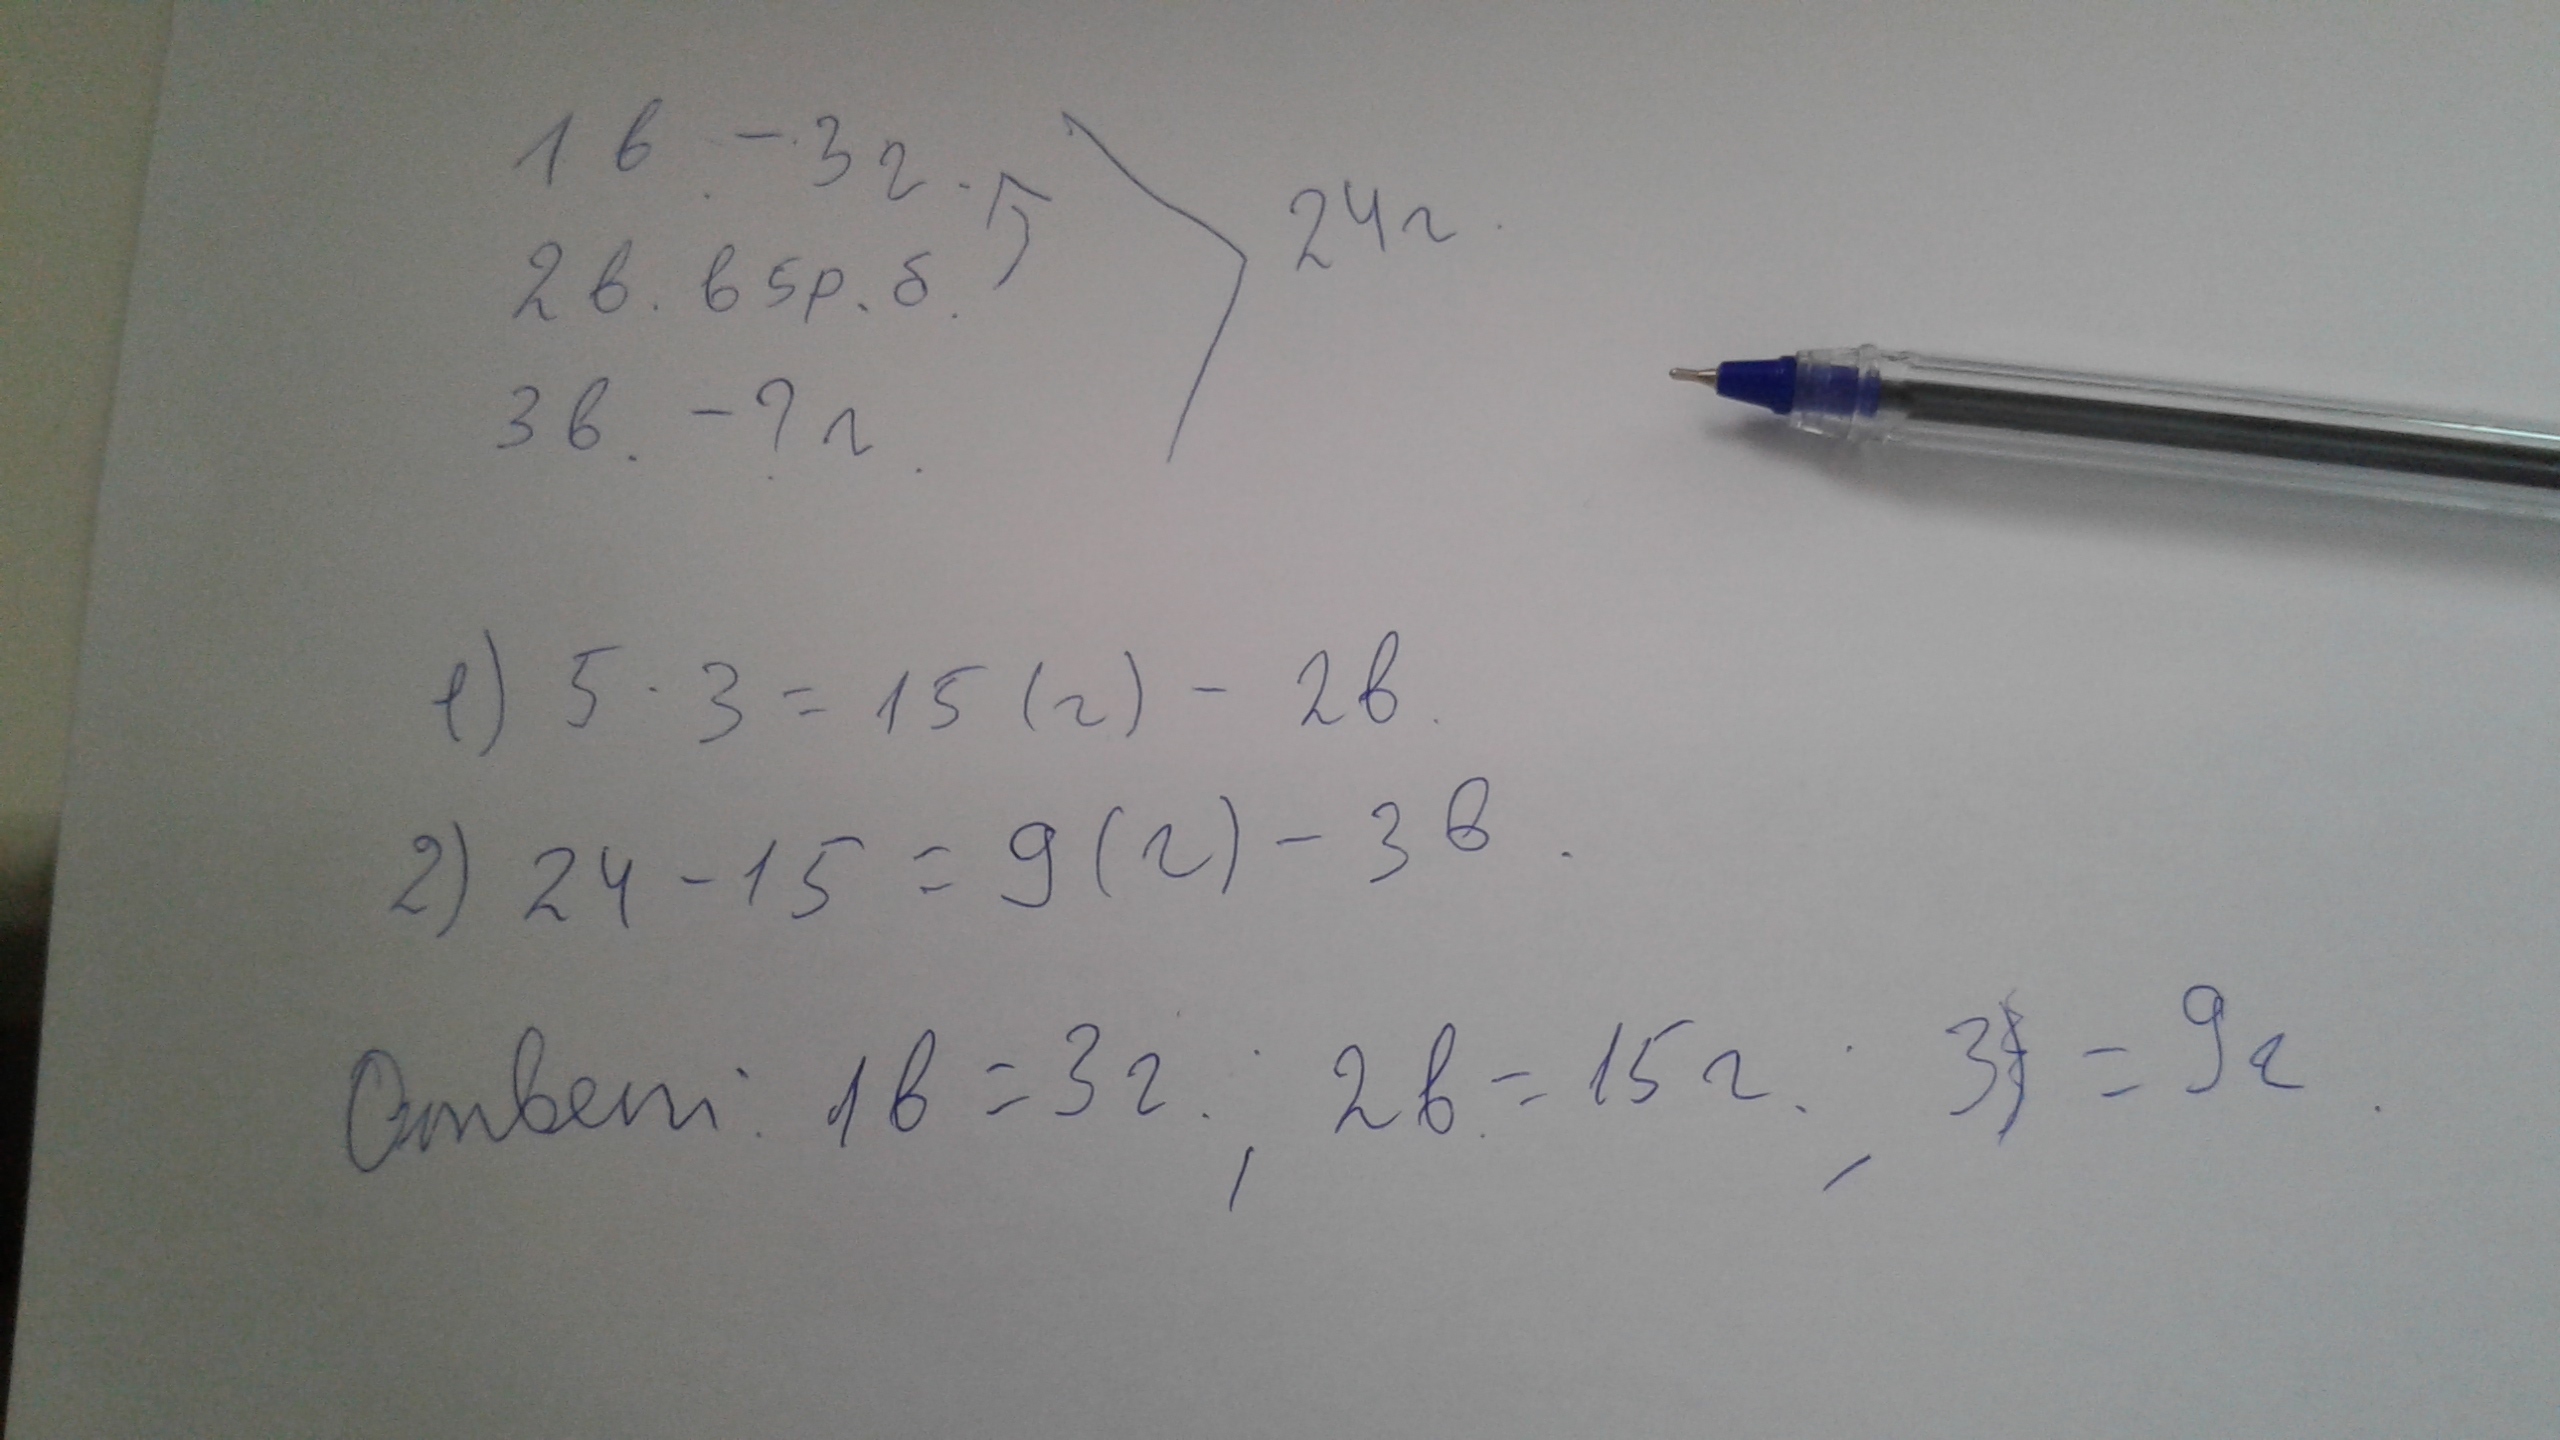 1 в. - 3 г.
2 в. в 5 р. б.
3 в. - ? г.
24 г.
1) 5 · 3 = 15 (г) - 2 в.
2) 24 - 15 = 9 (г) - 3 в.
Ответ: 1 в = 3 г.; 2 в. = 15 г.; 3 = 9 г.